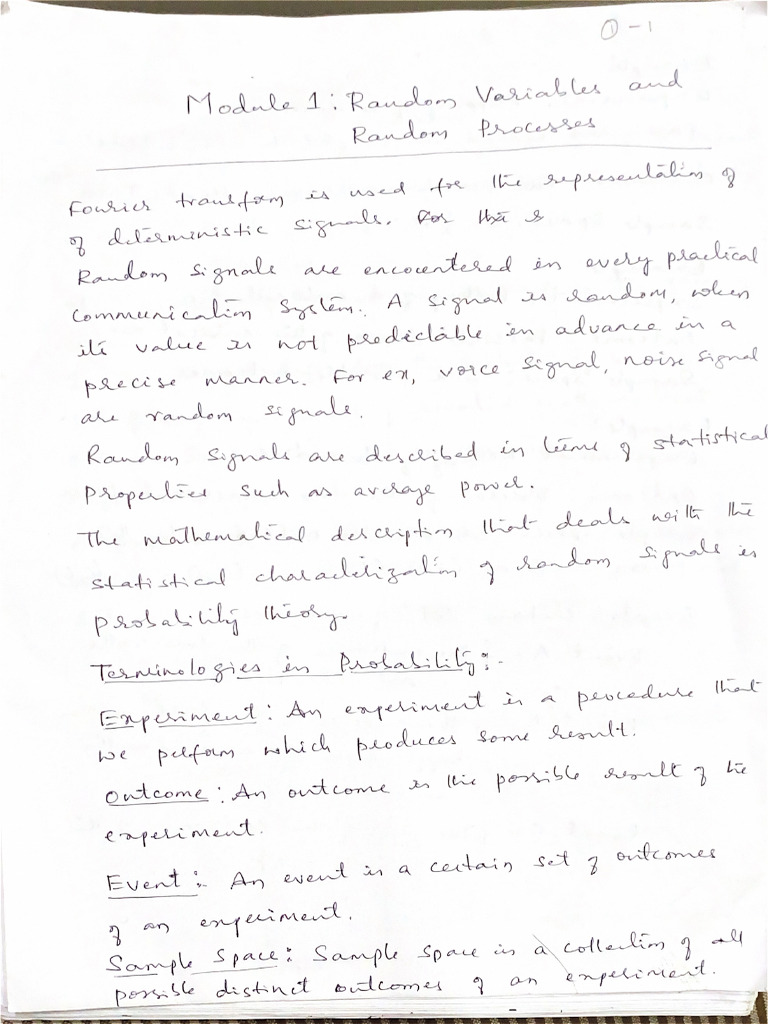 ① - 1
Module 1: Random Variables and
Random Processes
Fourier transform is used for the representation of
of deterministic signals. For the s
Random signals are encountered in every practical
communication system. A signal is random, when
its value is not predictable in advance in a
precise manner. For ex, voice signal, noise signal
are random signals.
Random signals are described in terms of statistical
properties such as average power.
The mathematical description that deals with the
statistical characterization of random signals is
probability theory.
Terminologies in Probability:-
Experiment: An experiment is a procedure that
we perform which produces some result.
Outcome: An outcome is the possible result of the
experiment.
Event:- An event is a certain set of outcomes
of an experiment.
Sample Space: Sample space is a collection of all
possible distinct outcomes of an experiment.